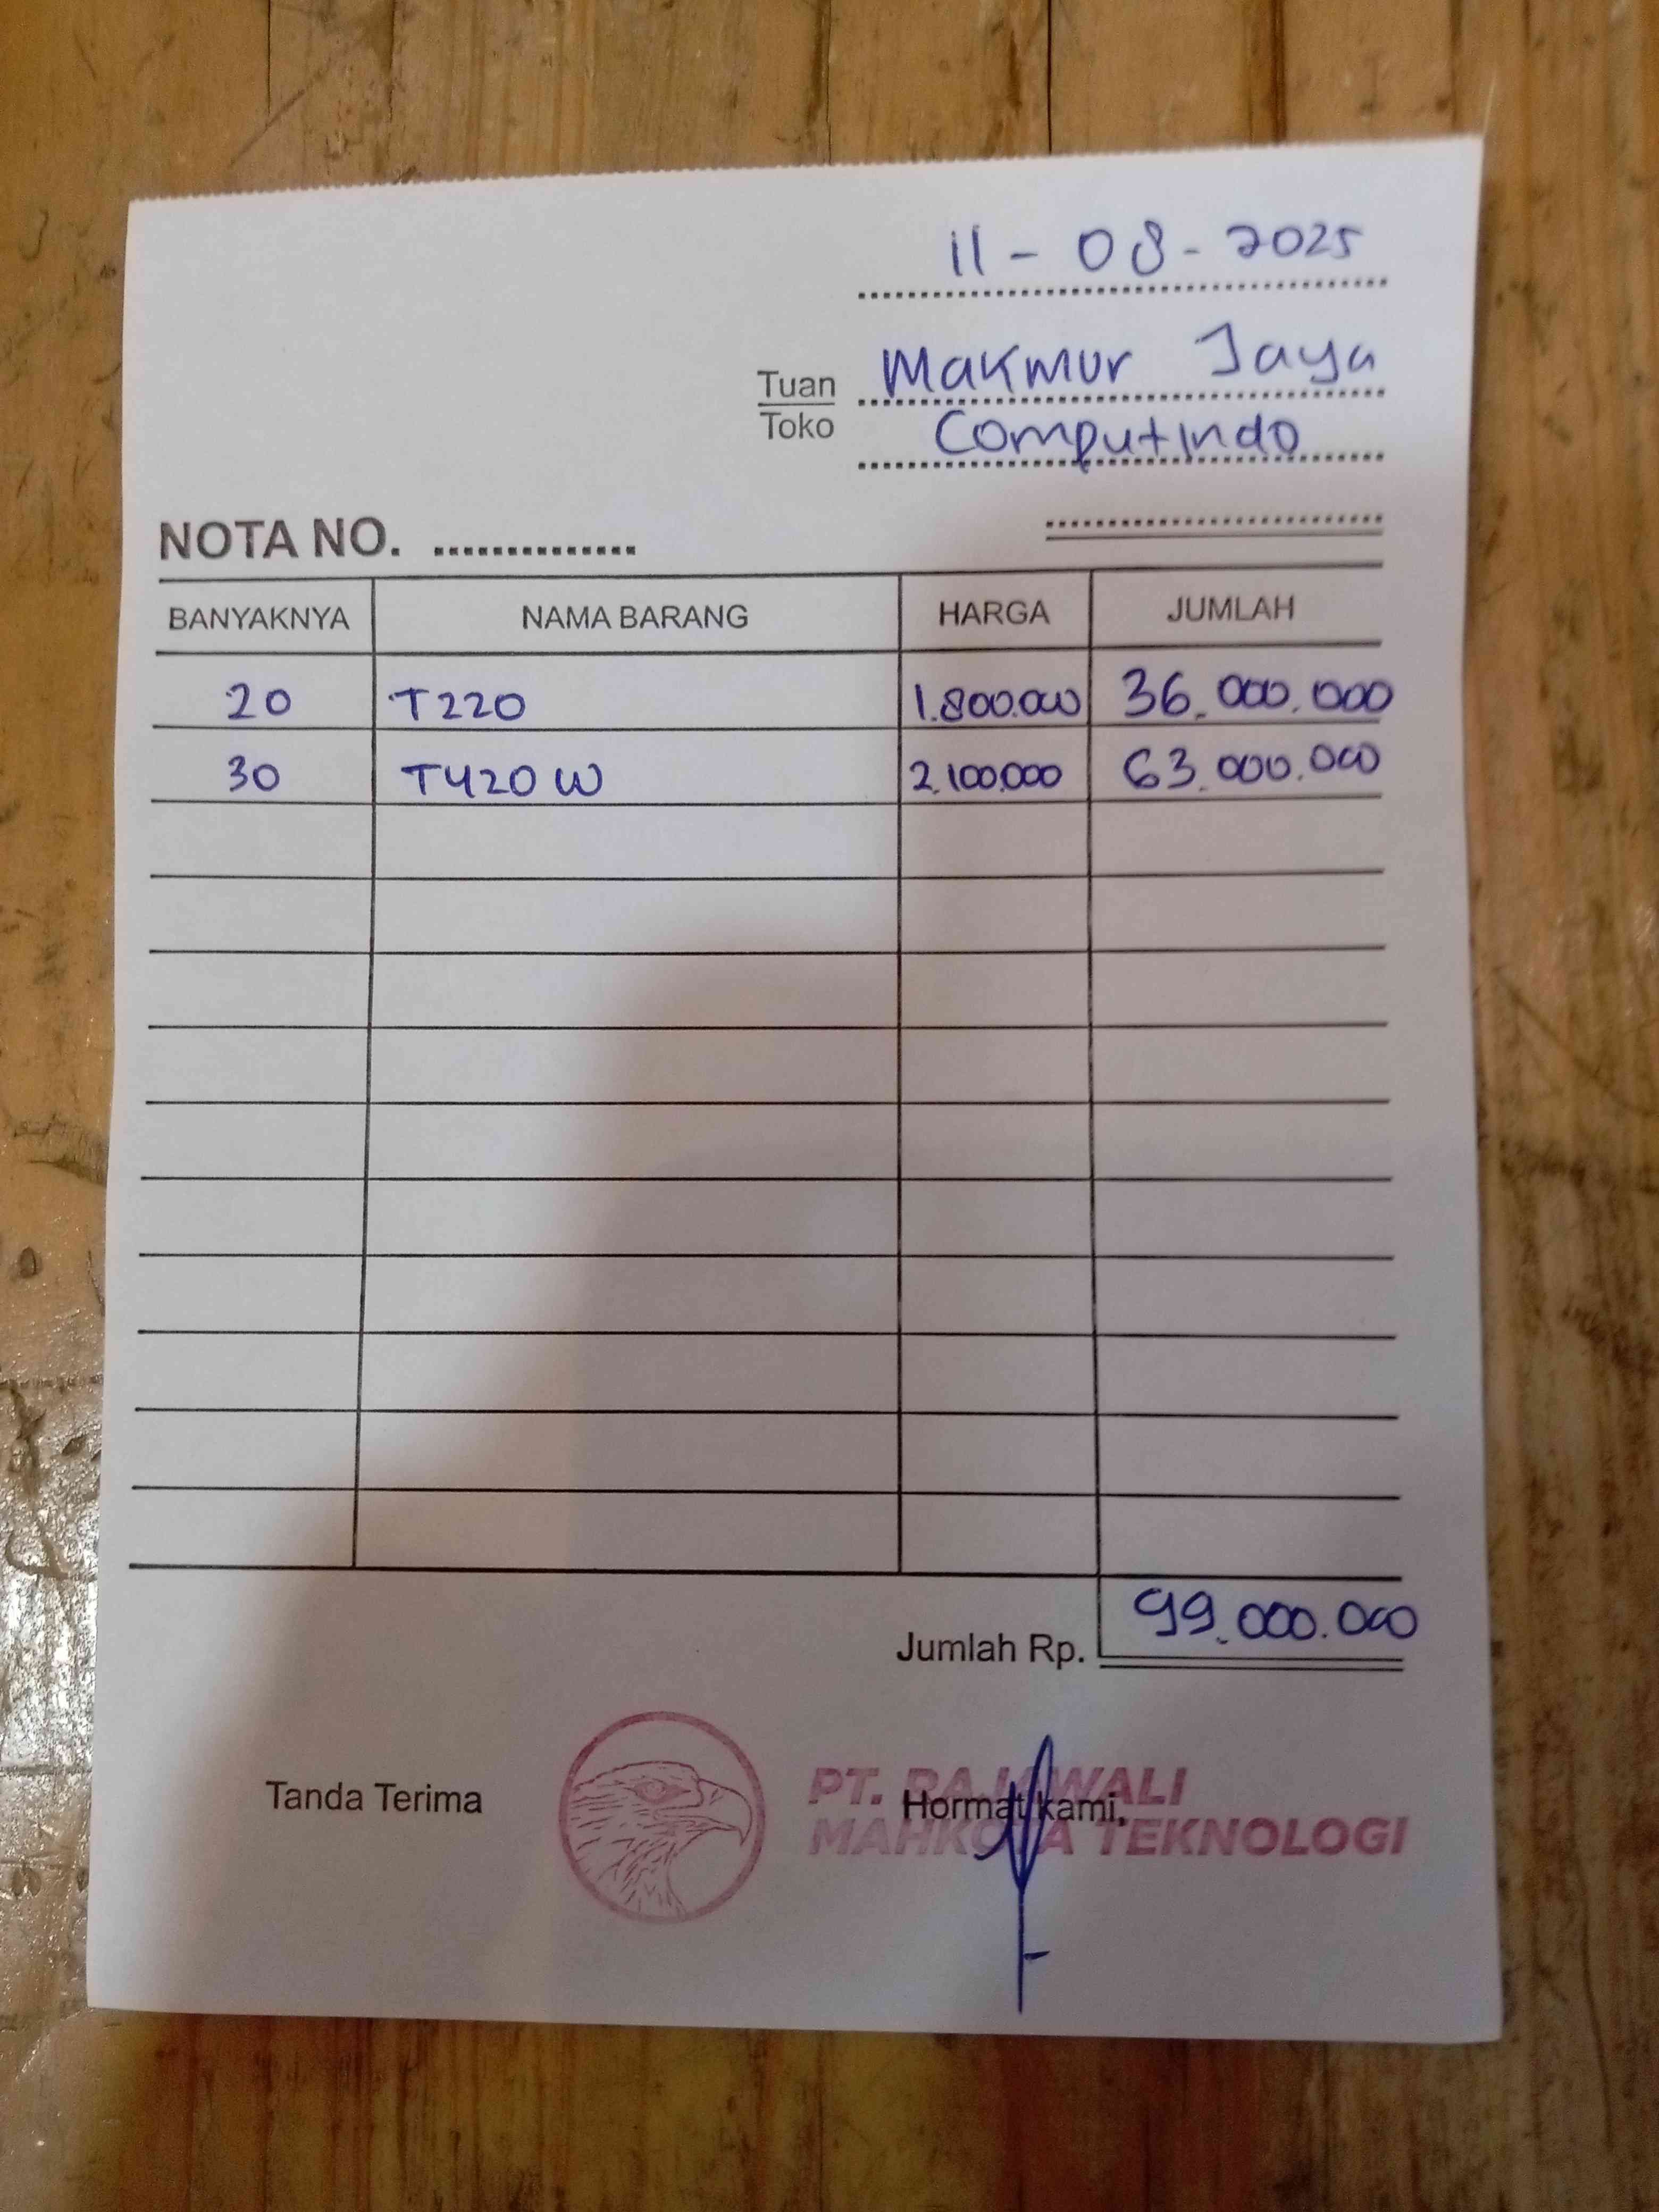 11 - 08 - 2025
Tuan Makmur Jaya
Toko Computindo
NOTA NO. ..............
BANYAKNYA NAMA BARANG HARGA JUMLAH
20 T220 1.800.000 36.000.000
30 T420 W 2.100.000 63.000.000
Jumlah Rp. 99.000.000
Tanda Terima Hormat kami,
PT. RAJAWALI
MAHKOTA TEKNOLOGI